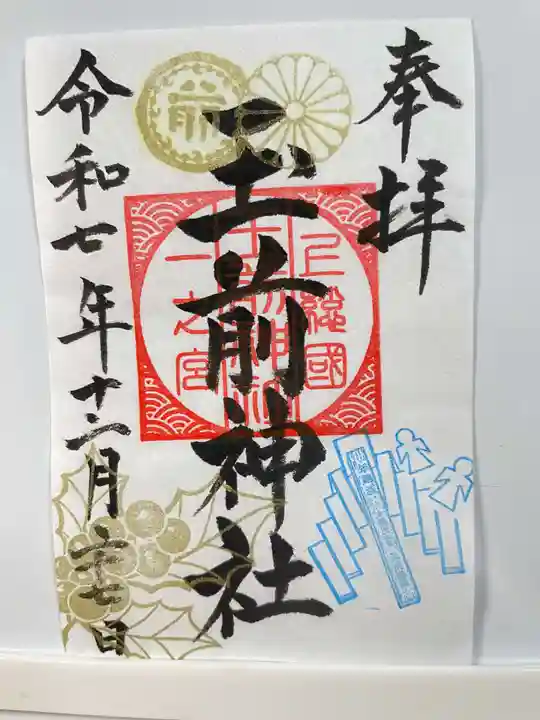 奉拝
上総國
玉前神社
一之宮
前
令和七年十二月二十七日